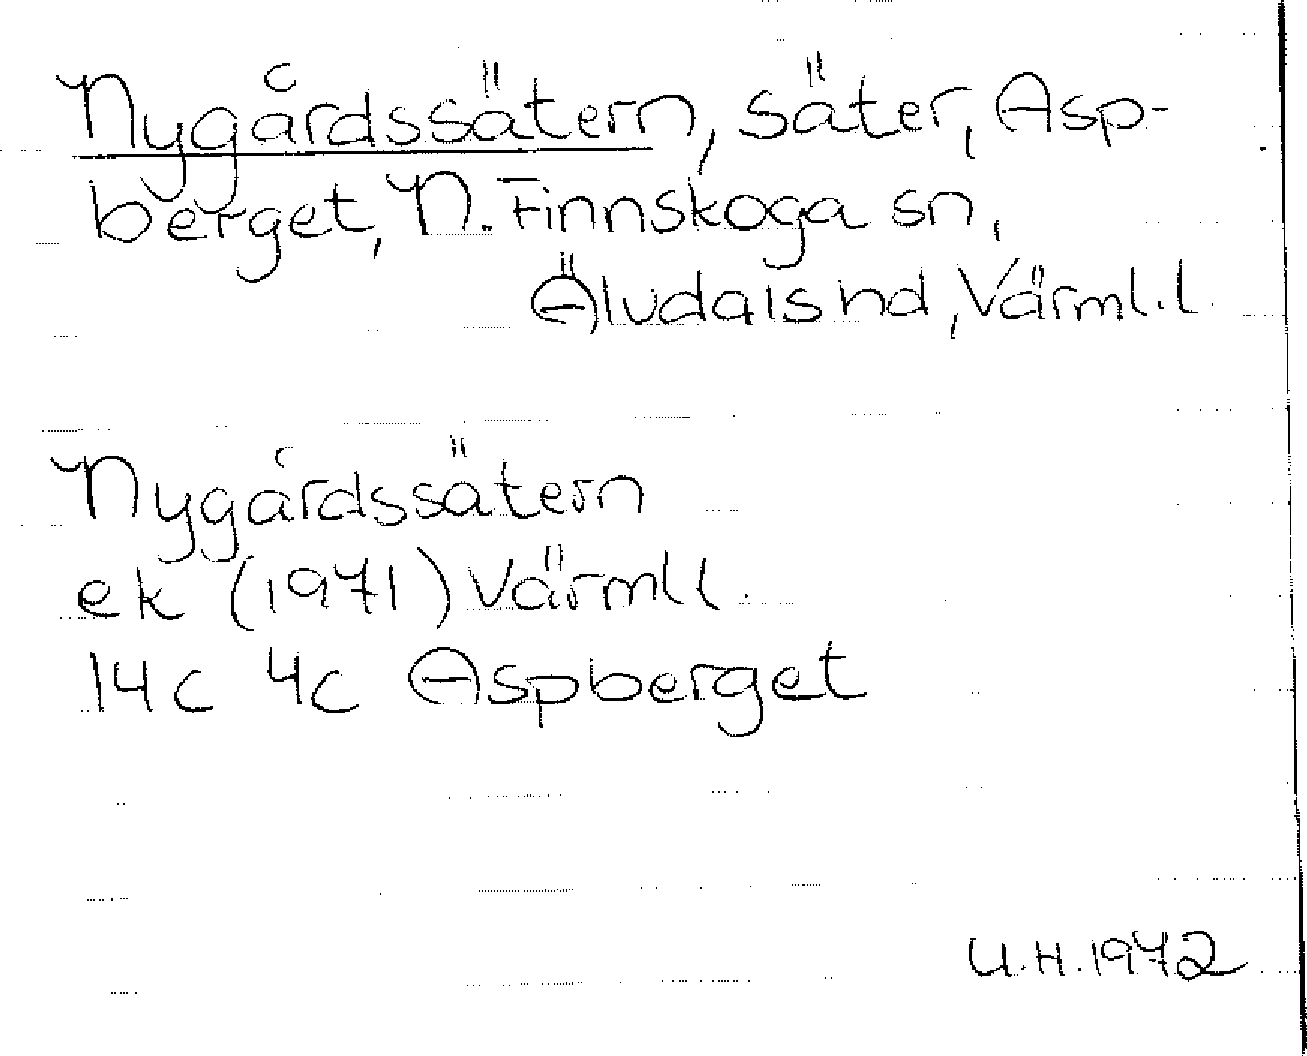 Nygårdssätern, säter, Asp-
berget, N. Finnskoga sn,
Älvdals hd, Värml. l.
Nygårdssätern
ek (1971) Värml l.
14c 4c Aspberget
U.H. 1972